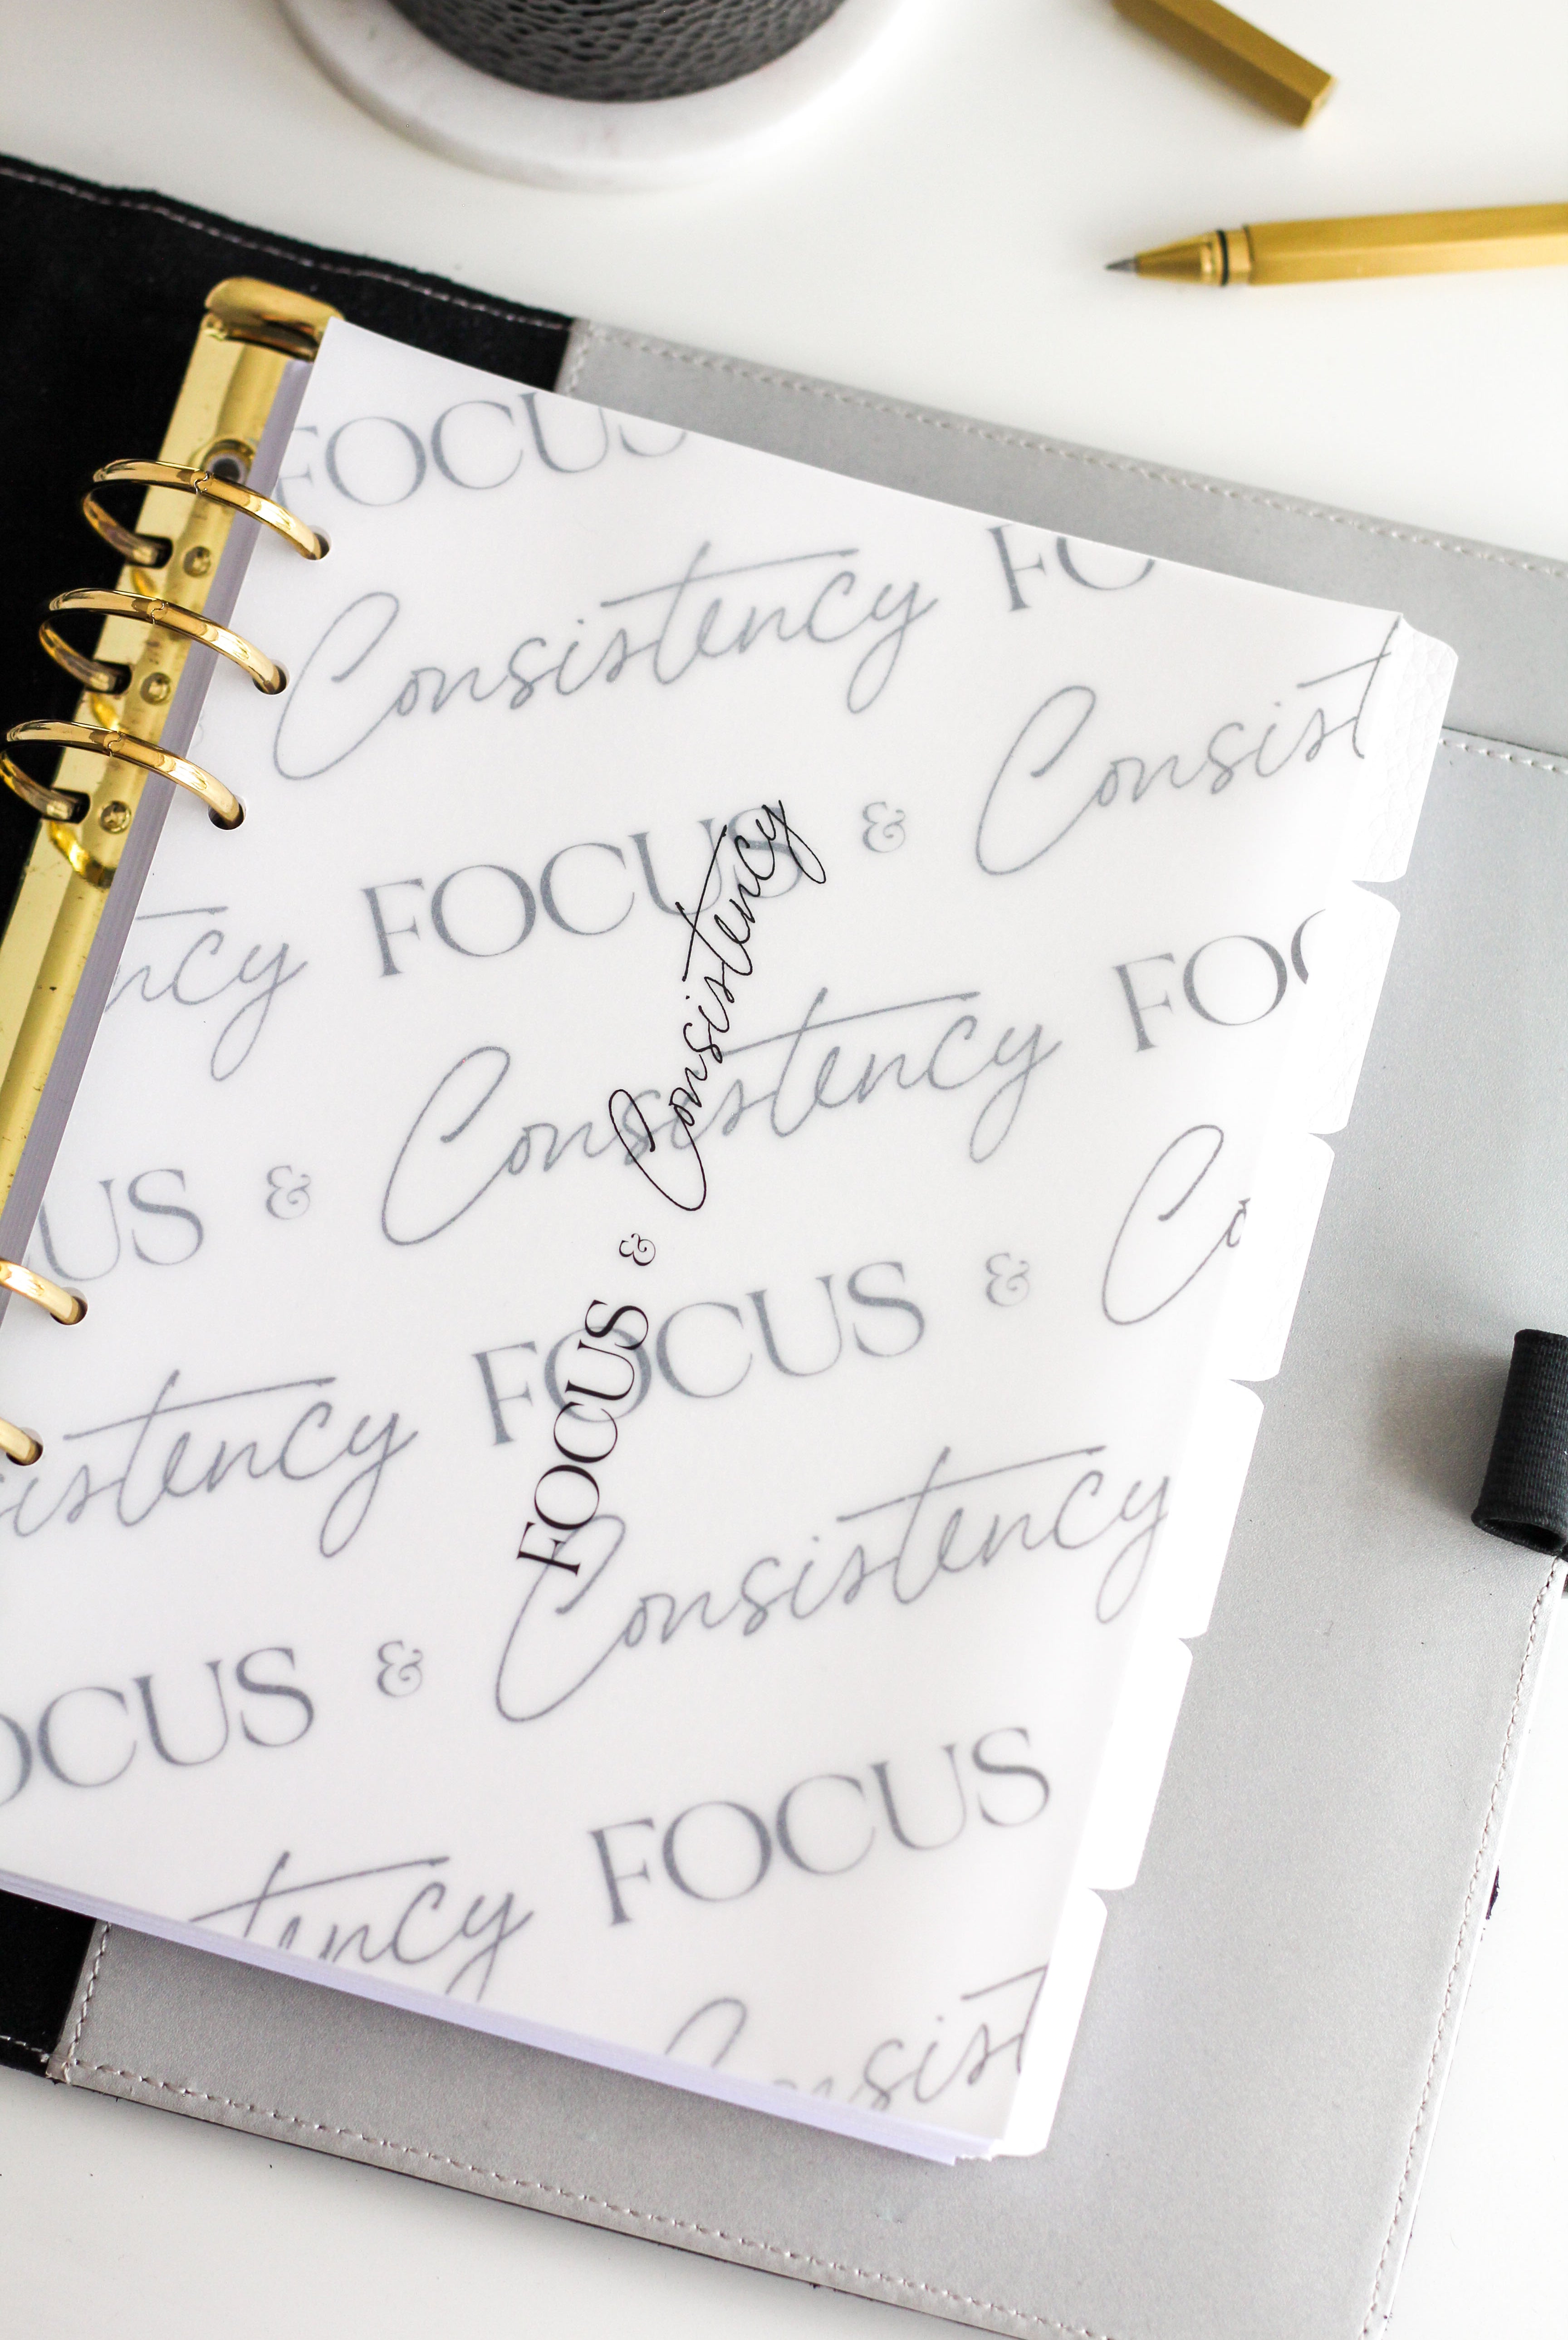 FOCUS
Consistency FO
Consist
FOCUS &
ncy
FOCUS & Consistency
Consistency FOC
US &
FOCUS & Co
sistency
Consistency
OCUS &
FOCUS
tency
Consist